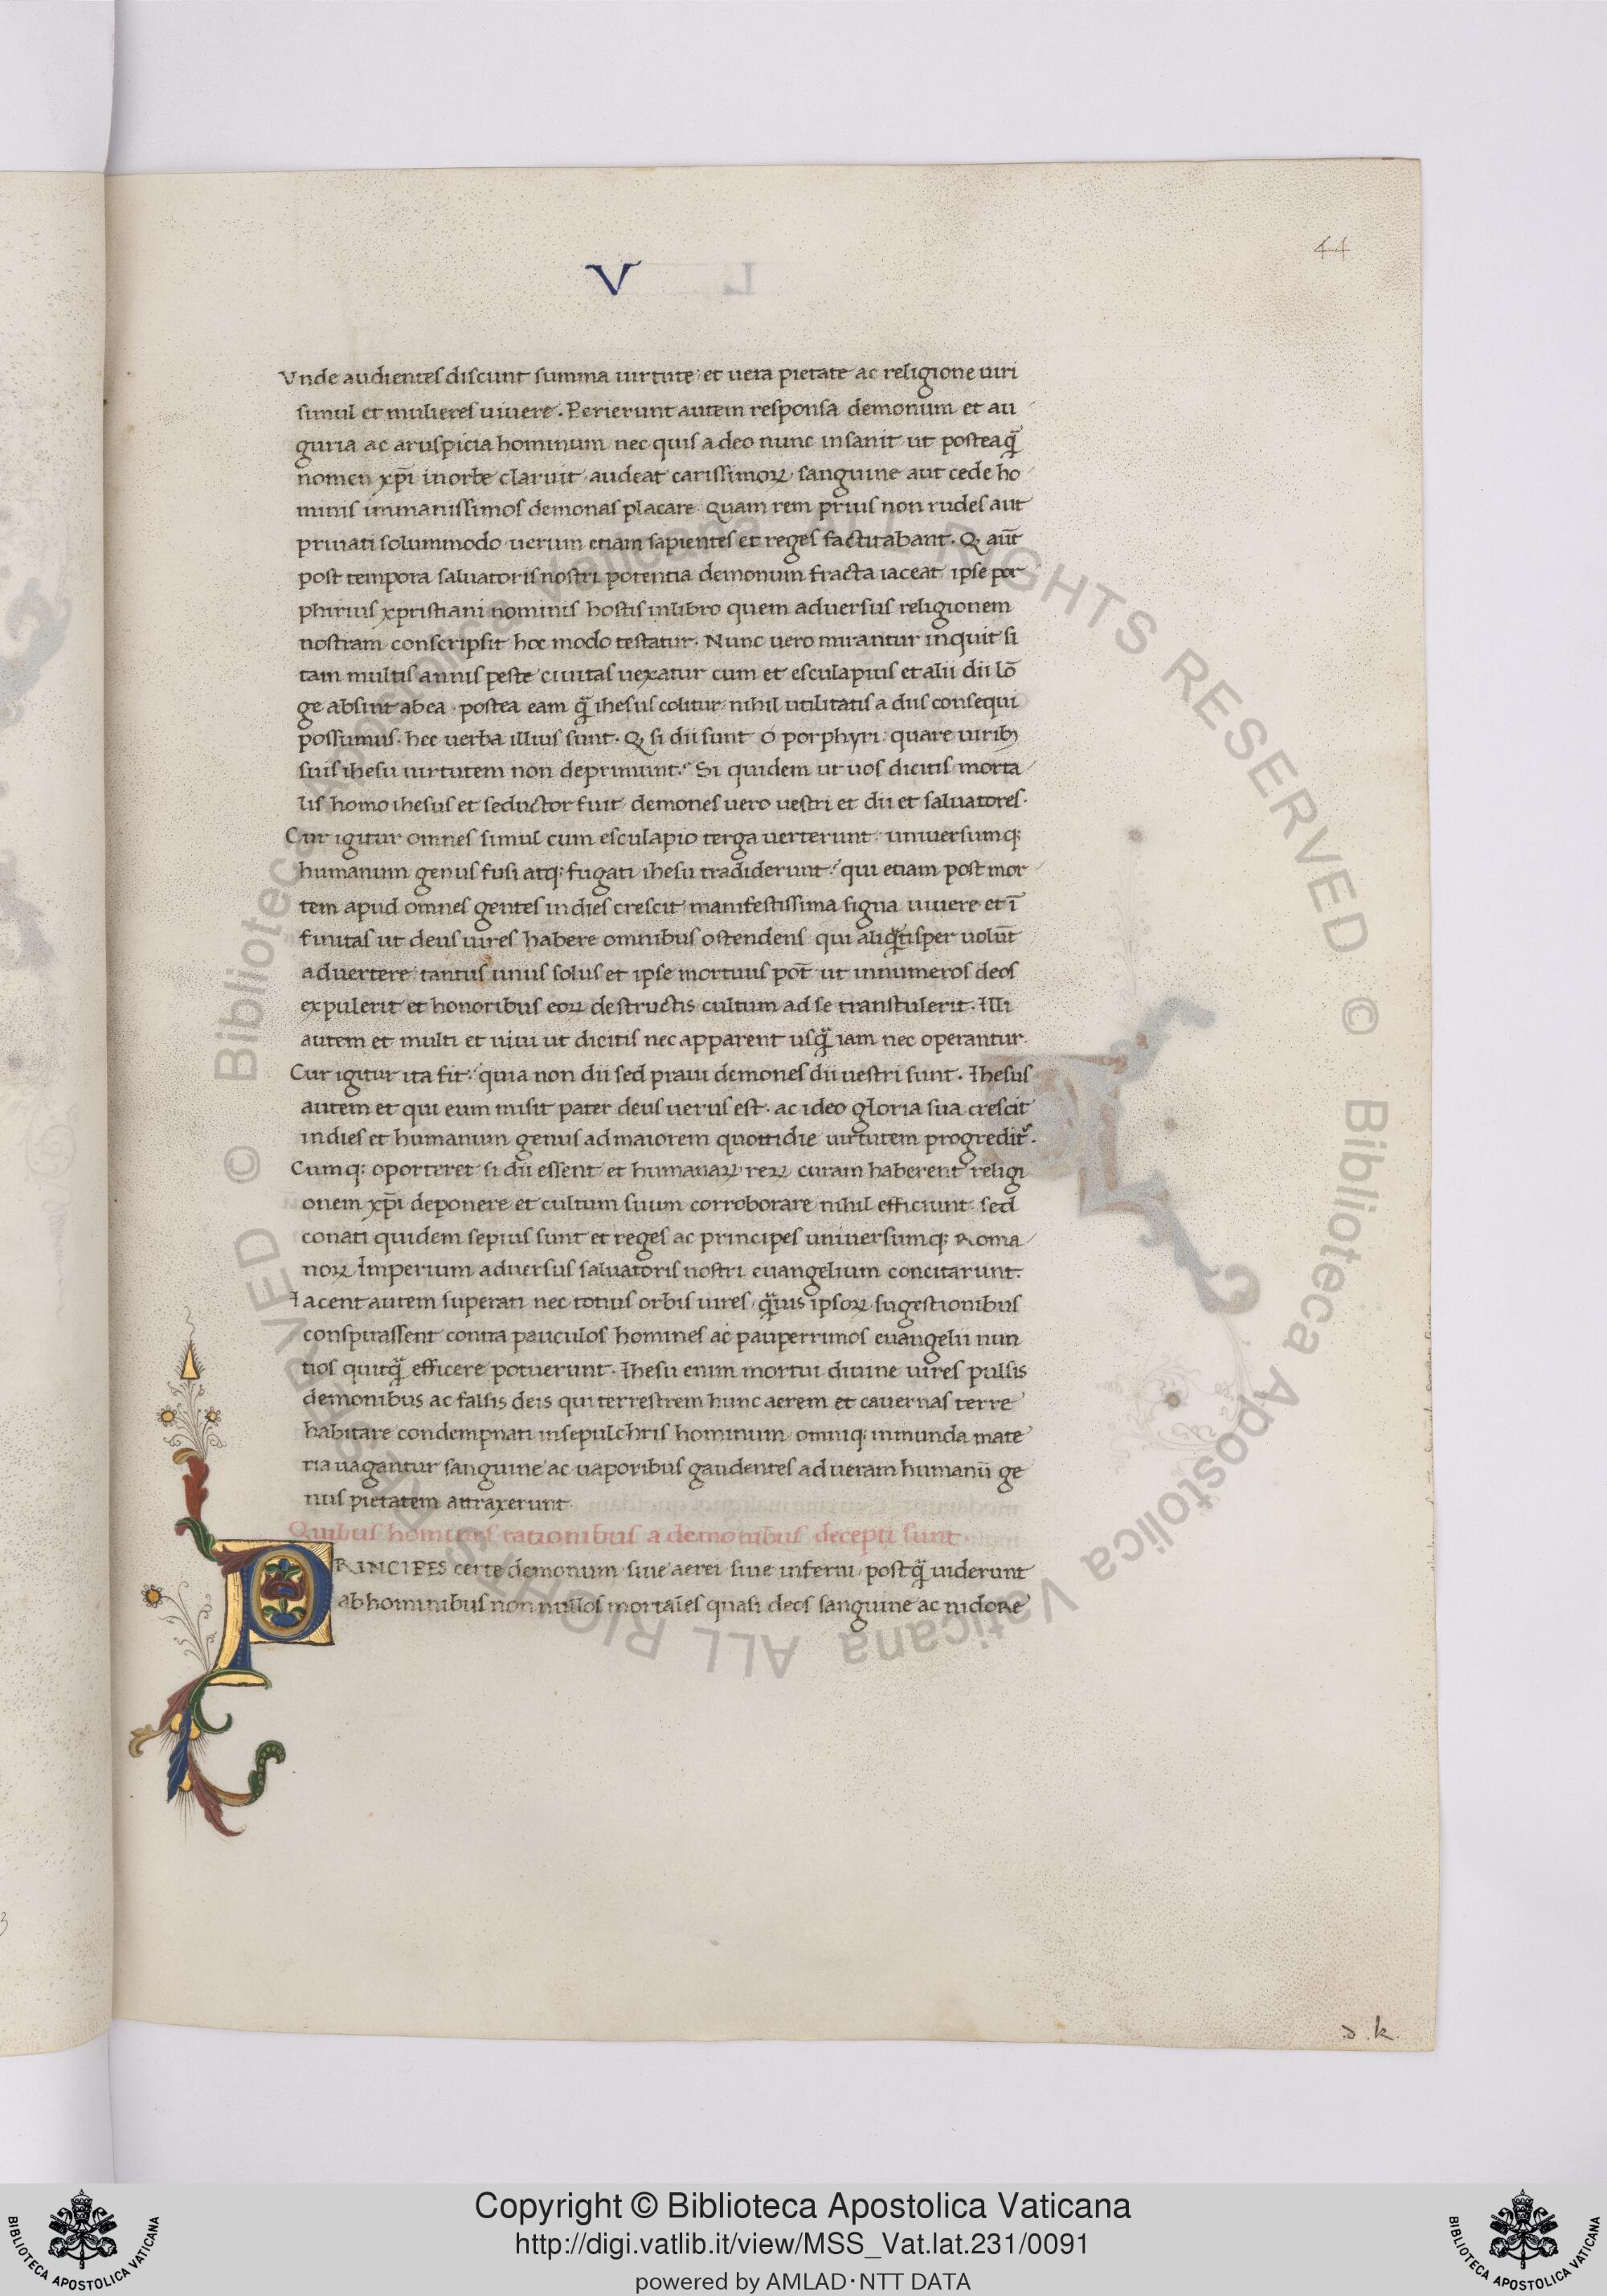 44
V
Vnde audientes discunt summa uirtute et uera pietate ac religione uiri
simul et mulieres uiuere. Perierunt autem responsa demonum et au
guria ac aruspicia hominum nec quis adeo nunc insanit ut posteaq̃
nomen xp̄i in orbe claruit audeat carissimoꝝ sanguine aut cede ho
minis immanissimos demonas placare. quam rem prius non rudes aut
priuati solummodo uerum etiam sapientes et reges factitabant. Q, aūt
post tempora saluatoris nostri potentia demonum fracta iaceat ipse por
phirius xpristiani nominis hostis in libro quem aduersus religionem
nostram conscripsit hoc modo testatur. Nunc uero mirantur inquit si
tam multis annis peste ciuitas uexatur cum et esculapius et alii dii lō
ge absint ab ea. postea eam q̃ ihesus colitur nihil utilitatis a diis consequi
possumus. hec uerba illius sunt. Q, si dii sunt o porphyri quare uirib;
suis ihesu uirtutem non deprimunt. Si quidem ut uos dicitis morta
lis homo ihesus et seductor fuit demones uero uestri et dii et saluatores.
Cur igitur omnes simul cum esculapio terga uerterunt uniuersumq;
humanum genus fusi atq; fugati ihesu tradiderunt. qui etiam post mor
tem apud omnes gentes in dies crescit manifestissima signa uiuere et ī
finitas ut deus uires habere omnibus ostendens qui aliq̃tisper uolūt
aduertere tantus unus solus et ipse mortuus pot̄ ut innumeros deos
expulerit et honoribus eoꝝ destructis cultum ad se transtulerit. Illi
autem et multi et uiui ut dicitis nec apparent usq̃ iam nec operantur.
Cur igitur ita fit. quia non dii sed praui demones dii uestri sunt. Ihesus
autem et qui eum misit pater deus uerus est. ac ideo gloria sua crescit
in dies et humanum genus ad maiorem quottidie uirtutem progredit᷑.
Cumq; oporteret si dii essent et humanaꝝ reꝝ curam haberent religi
onem xp̄i deponere et cultum suum corroborare nihil efficiunt sed
conati quidem sepius sunt et reges ac principes uniuersumq; Roma
noꝝ Imperium aduersus saluatoris nostri euangelium concitarunt.
Iacent autem superati nec totius orbis uires q̃uis ipsoꝝ sugestionibus
conspirassent contra pauculos homines ac pauperrimos euangelii nun
tios quitq̃ efficere potuerunt. Ihesu enim mortui diuine uires pulsis
demonibus ac falsis deis qui terrestrem hunc aerem et cauernas terre
habitare condempnati in sepulchris hominum omniq; inmunda mate
ria uagantur sanguine ac uaporibus gaudentes ad ueram humanū ge
nus pietatem attraxerunt
Quibus homines rationibus a demonibus decepti sunt.
PRINCIPES certe demonum siue aerei siue inferni postq̃ uiderunt
ab hominibus non nullos mortales quasi deos sanguine ac nidore
.k.
© Biblioteca Apostolica Vaticana ALL RIGHTS RESERVED © Biblioteca Apostolica Vaticana ALL RIGHTS RESERVED
Copyright © Biblioteca Apostolica Vaticana
http://digi.vatlib.it/view/MSS_Vat.lat.231/0091
powered by AMLAD·NTT DATA
BIBLIOTECA APOSTOLICA VATICANA
BIBLIOTECA APOSTOLICA VATICANA